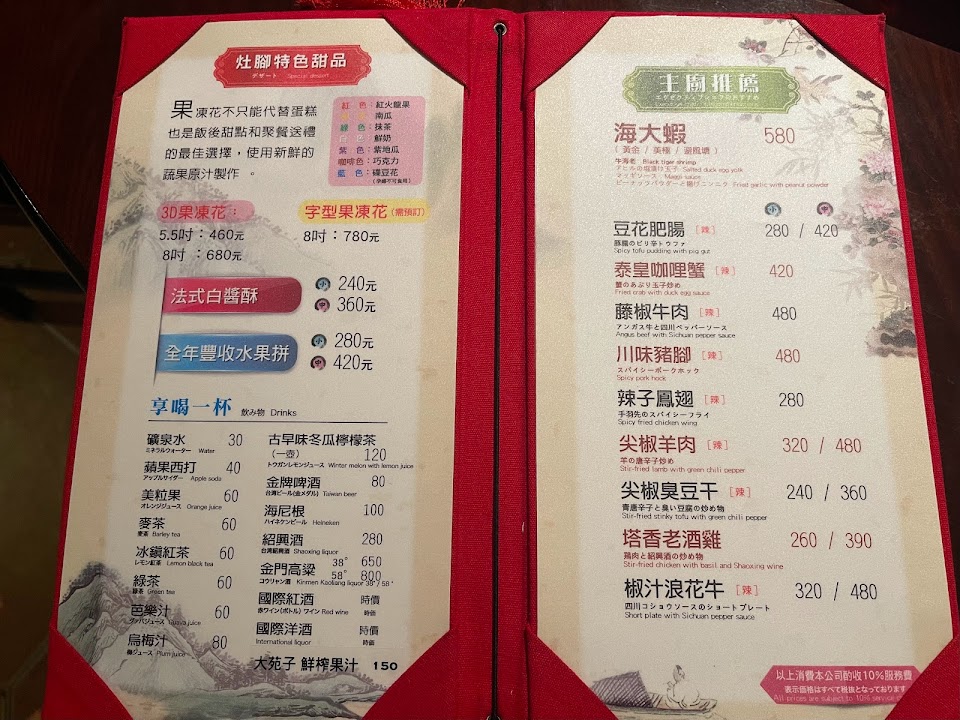 灶腳特色甜品
デザート Special dessert
果凍花不只能代替蛋糕
也是飯後甜點和聚餐送禮
的最佳選擇，使用新鮮的
蔬果原汁製作 。
紅 色：紅火龍果
南瓜
綠 色：抹茶
白 色：鮮奶
紫 色：紫地瓜
咖啡色：巧克力
藍 色：碟豆花
(孕婦不可食用)
3D果凍花：
5.5吋：460元
8吋 ：680元
字型果凍花(需預訂)
8吋：780元
法式白醬酥
240元
360元
全年豐收水果拼
280元
420元
享喝一杯 飲み物 Drinks
礦泉水 30
ミネラルウォーター Water
蘋果西打 40
アップルサイダー Apple soda
美粒果 60
オレンジジュース Orange juice
麥茶 60
麥茶 Barley tea
冰鎮紅茶 60
レモン紅茶 Lemon black tea
綠茶 60
緑茶 Green tea
芭樂汁 60
グァバジュース Guava juice
烏梅汁 80
梅ジュース Plum juice
古早味冬瓜檸檬茶
(一壺) 120
トウガンレモンジュース Winter melon with lemon juice
金牌啤酒 80
台湾ビール(金メダル) Taiwan beer
海尼根 100
ハイネケンビール Heineken
紹興酒 280
台湾紹興酒 Shaoxing liquor
金門高粱 38° 650
58° 800
コウリャン酒 Kinmen Kaoliang liquor 38°/ 58°
國際紅酒 時價
赤ワイン(ボトル) ワイン Red wine 時価
國際洋酒 時價
International liquor 時価
大苑子 鮮榨果汁 150
主廚推薦
海大蝦 580
( 黃金 / 美極 / 避風塘 )
牛海老 Black tiger shrimp
アヒルの塩漬け玉子 Salted duck egg yolk
マッギソース Maggi sauce
ピーナッツパウダーと揚げニンニク Fried garlic with peanut powder
豆花肥腸 [辣] 280 / 420
豚腸のピリ辛トウファ
Spicy tofu pudding with pig gut
泰皇咖哩蟹 [辣] 420
蟹のあぶり玉子炒め
Fried crab with duck egg sauce
藤椒牛肉 [辣] 480
アンガス牛と四川ペッパーソース
Angus beef with Sichuan pepper sauce
川味豬腳 [辣] 480
スパイシーポークホック
Spicy pork hock
辣子鳳翅 [辣] 280
手羽先のスパイシーフライ
Spicy fried chicken wing
尖椒羊肉 [辣] 320 / 480
羊の唐辛子炒め
Stir-fried lamb with green chili pepper
尖椒臭豆干 [辣] 240 / 360
青唐辛子と臭い豆腐の炒め物
Stir-fried stinky tofu with green chili pepper
塔香老酒雞 260 / 390
鶏肉と紹興酒の炒め物
Stir-fried chicken with basil and Shaoxing wine
椒汁浪花牛 [辣] 320 / 480
四川コショウソースのショートプレート
Short plate with Sichuan pepper sauce
以上消費本公司酌收10%服務費
表示価格はすべて税抜となっております
All prices are subject to 10% service